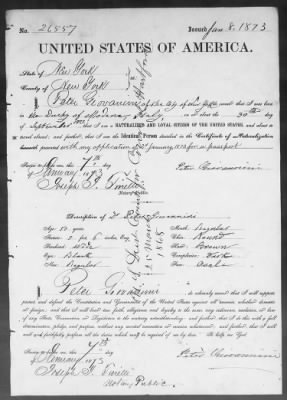 No. 26557 Issued Jan 8. 1873
UNITED STATES OF AMERICA.
State of New York
County of New York
I, Peter Giovannini of the City of
the Duchy of Modena Italy, on the 30th day
of September, that I am a NATURALIZED AND LOYAL CITIZEN OF THE UNITED STATES, and about
to travel abroad; that I am the Identical Person described in the Certificate of Naturalization
herewith presented with my application of January 1873 for a passport
Sworn to before me, this 7th
day of January 1873
Joseph F.
Notary Public.
Peter Giovannini
Description of Peter Giovannini
Age: years. Mouth: Regular
Stature: 5 feet 6 inches, Eng. Chin: Round
Forehead: Wide Hair: Brown
Eyes: Black Complexion:
Nose: Regular Face: Oval
I, Peter Giovannini do solemnly swear that I will support,
protect, and defend the Constitution and Government of the United States against all enemies, whether domestic
or foreign; and that I will bear true faith, allegiance, and loyalty to the same, any ordinance, resolution, or law
of any State, Convention, or Legislature to the contrary notwithstanding; and further, that I do this with a full
determination, pledge, and purpose, without any mental reservation or evasion whatsoever; and further, that I
will well and faithfully perform all the duties which may be required of me by law. So help me God.
Sworn to before me, this 7th
day of January 1873
Peter Giovannini
Joseph F.
Notary Public.
1868